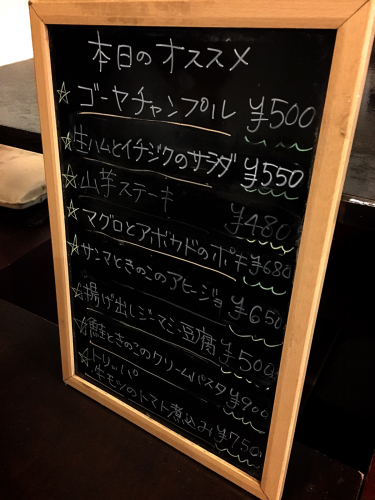 本日のオススメ
☆ゴーヤチャンプル ¥500
☆生ハムとイチジクのサラダ ¥550
☆山芋ステーキ ¥480
☆マグロとアボカドのポキ ¥680
☆サンマときのこのアヒージョ ¥650
☆揚げ出しジーマミ豆腐 ¥500
☆鮭ときのこのクリームパスタ ¥900
☆トリッパ
牛モツのトマト煮込み ¥750